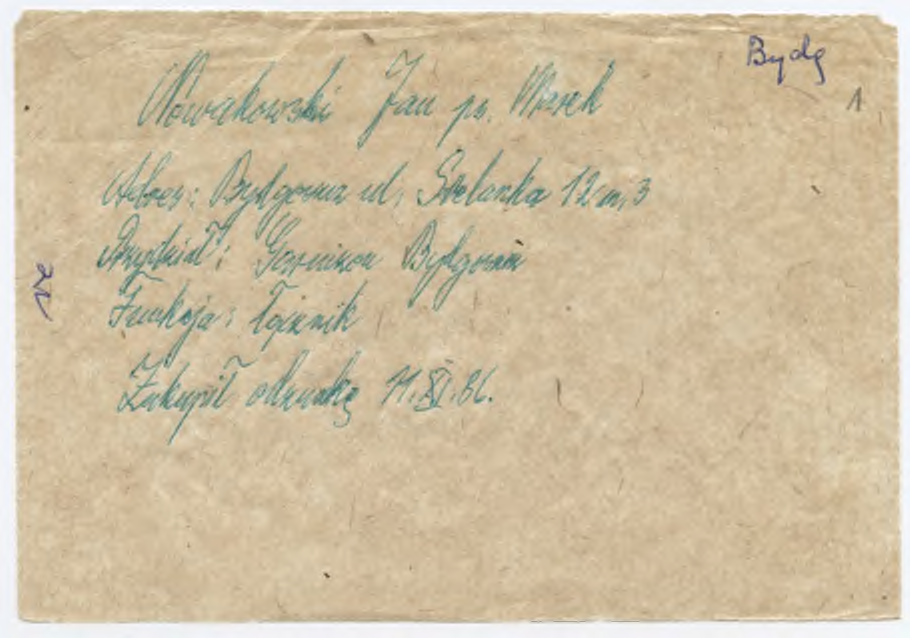 Bydg
1
Nowakowski Jan ps.
Adres: Bydgoszcz ul. 12 m, 3
Przydział: Garnizon Bydgoszcz
Funkcja: Łącznik
Zakupił odznakę 11.XI.86.